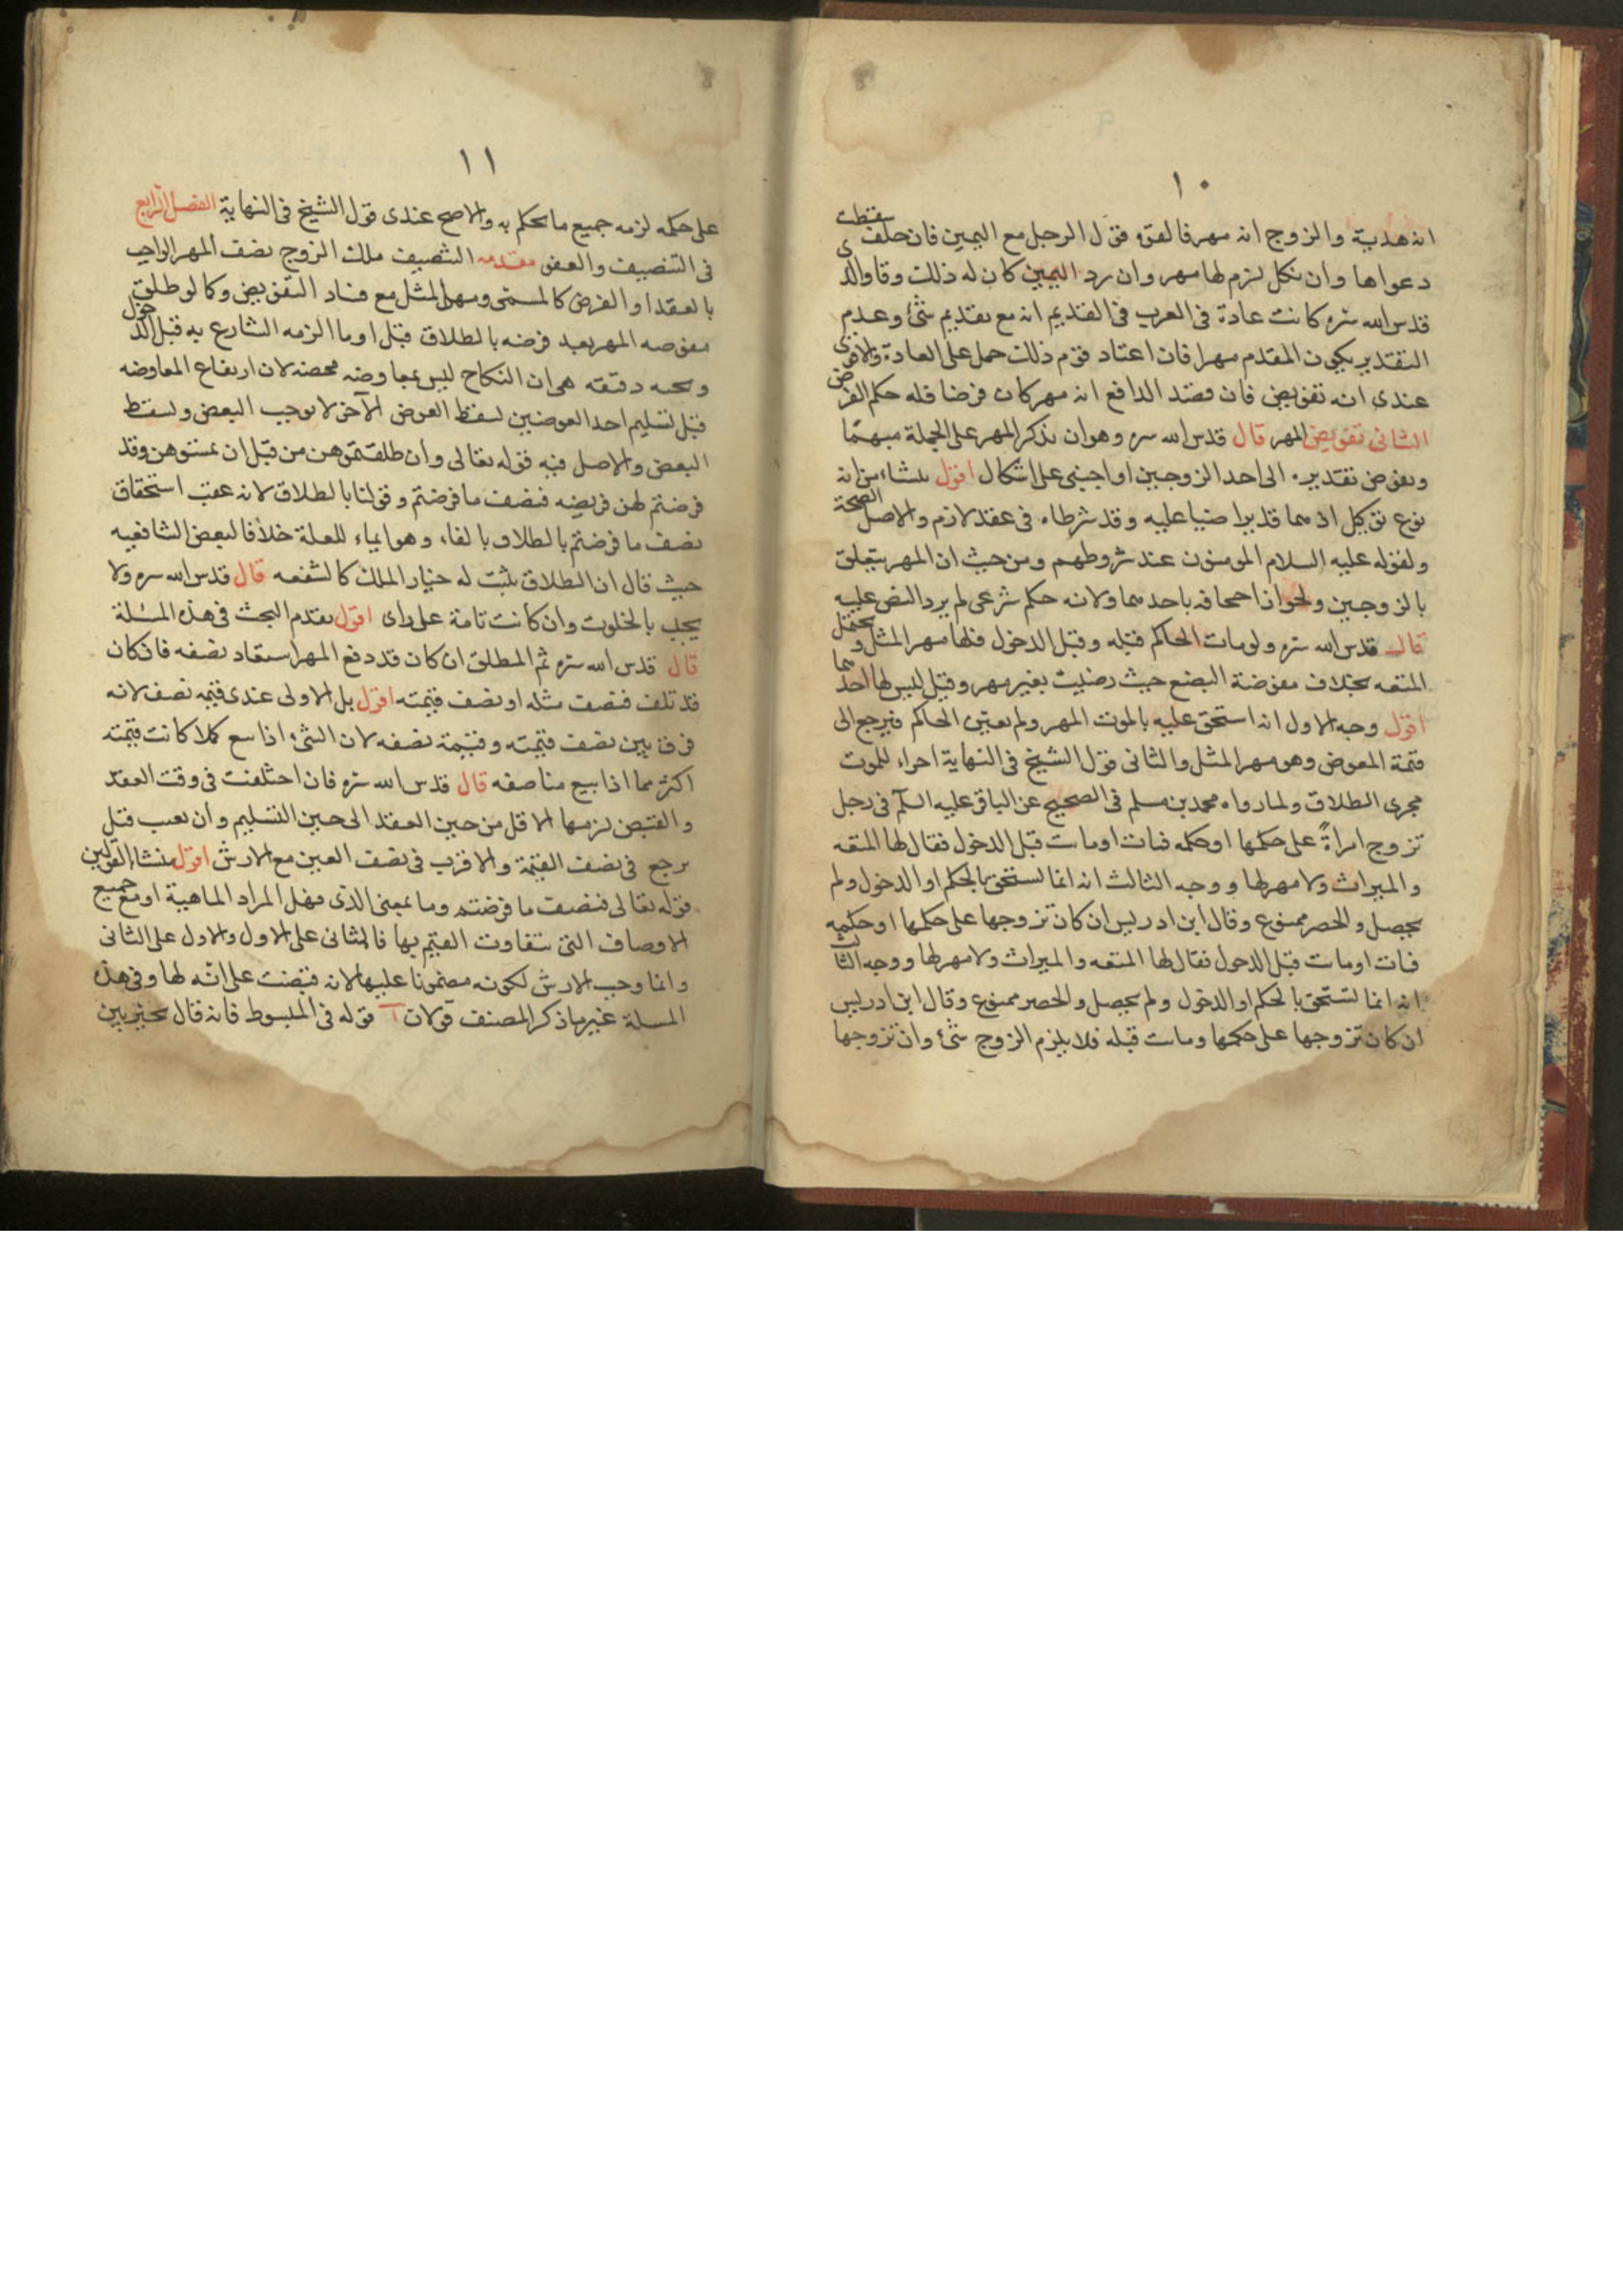 ١٠
انه هدية والزوج انه مهر فالقول قول الرجل مع اليمين فان حلف سقطت
دعواها وان نكل لزم لها مهر وان رد اليمين كان له ذلك وقا والدى
قدس الله سره كانت عادة فى العرب فى القديم انه مع تقديم شئ وعدم
التقدير يكون المقدم مهرا فان اعتاد قوم ذلك حمل على العادة والاقوى
عندى انه تفويض فان قصد الدافع انه مهر كان فرضا فله حكم الفرض
الثانى تفويض المهر قال قدس الله سره وهو ان يذكر المهر على الجملة مبهما
ويفوض تقديره الى احد الزوجين او اجنبى على اشكال اقول ينشاء من انه
نوع توكيل اذ هما قد تراضيا عليه وقد شرطاه فى عقد لازم والاصل الصحة
ولقوله عليه السلام المومنون عند شروطهم ومن حيث ان المهر يتعلق
بالزوجين ولجواز احجافه باحدهما ولانه حكم شرعى لم يرد النص عليه
قال قدس الله سره ولو مات الحاكم قبله وقبل الدخول فلها مهر المثل ويحتمل
المتعه بخلاف مفوضة البضع حيث رضيت بغير مهر وقيل ليس لها احدهما
اقول وجه الاول انه استحق عليه بالموت المهر ولم يعين الحاكم فيرجع الى
قيمة المعوض وهو مهر المثل والثانى قول الشيخ فى النهاية اجراء للموت
مجرى الطلاق ولما رواه محمد بن مسلم فى الصحيح عن الباقر عليه السلم فى رجل
تزوج امراةً على حكمها او حكمه فمات او ماتت قبل الدخول فقال لها المتعه
والميراث ولا مهر لها ووجه الثالث انه انما تستحق بالحكم او الدخول ولم
يحصل والحصر ممنوع وقال ابن ادريس ان كان تزوجها على حكمها او حكمه
فمات او ماتت قبل الدخول فقال لها المتعه والميراث ولا مهر لها ووجه الثالث
انه انما تستحق بالحكم او الدخول ولم يحصل والحصر ممنوع وقال ابن ادريس
ان كان تزوجها على حكمها وماتت قبله فلا يلزم الزوج شئ وان تزوجها
١١
على حكمه لزمه جميع ما يحكم به والاصح عندى قول الشيخ فى النهاية الفصل الرابع
فى التنصيف والعفو مقدمه التنصيف ملك الزوج نصف المهر الواجب
بالعقد او الفرض كالمسمى ومهر المثل مع فساد التفويض وكما لو طلق
مفوضه المهر بعد فرضه بالطلاق قبل او ما الزمه الشارع به قبل الدخول
دقيقه هى ان النكاح ليس بمعاوضه محضه لان ارتفاع المعاوضه
قبل تسليم احد العوضين لسقط العوض الآخر لا يوجب البعض وليسقط
البعض والاصل فيه قوله تعالى وان طلقتموهن من قبل ان تمسوهن وقد
فرضتم لهن فريضه فنصف ما فرضتم وقولنا بالطلاق لانه عقب استحقاق
نصف ما فرضتم بالطلاق بالفاء وهو ايماء للعلة خلافا لبعض الشافعيه
حيث قال ان الطلاق يثبت له خيار الملك كالشفعه قال قدس الله سره ولا
يجب بالخلوت وان كانت تامة على راى اقول تقدم البحث فى هذه المسئلة
قال قدس الله سره ثم المطلق ان كان قد دفع المهر استعاد نصفه فان كان
قد تلف فنصف مثله او نصف قيمته اقول بل الاولى عندى قيمه نصف لانه
فرق بين نصف قيمته وقيمة نصفه لان الشئ اذا بيع كملا كانت قيمته
اكثر مما اذا بيع مناصفه قال قدس الله سره فان اختلفت فى وقت العقد
والقبض لزمها الاقل من حين العقد الى حين التسليم وان تعيب قيل
يرجع فى نصف القيمة والاقرب فى نصف العين مع الارش اقول منشا القولين
قوله تعالى فنصف ما فرضتم وما بمعنى الذى فهل المراد الماهية او مع جميع
الاوصاف التى تتفاوت القيم بها فالثانى على الاول والاول على الثانى
وانما وجب الارش لكونه مضمونا عليها لانه قبضت على انه لها وفى هذه
المسلة غير ما ذكر المصنف قولان آ قوله فى المبسوط فانه قال يخير بين